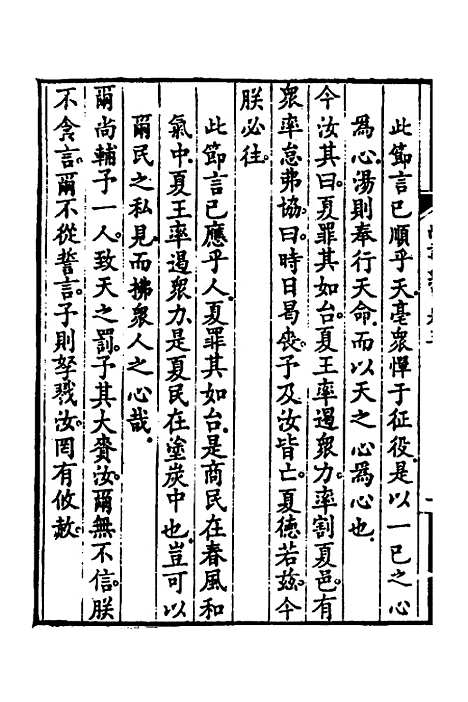 此節言已順乎天亳衆憚于征役是以一已之心
爲心湯則奉行天命而以天之心爲心也
今汝其曰夏罪其如台夏王率遏衆力率割夏邑有
衆率怠弗協曰時日曷喪予及汝皆亡夏德若玆今
朕必往
此節言已應乎人夏罪其如台是商民在春風和
氣中夏王率遏衆力是夏民在塗炭中也豈可以
爾民之私見而拂衆人之心哉
爾尚輔予一人致天之罰予其大賚汝爾無不信朕
不食言爾不從誓言予則孥戮汝罔有攸赦